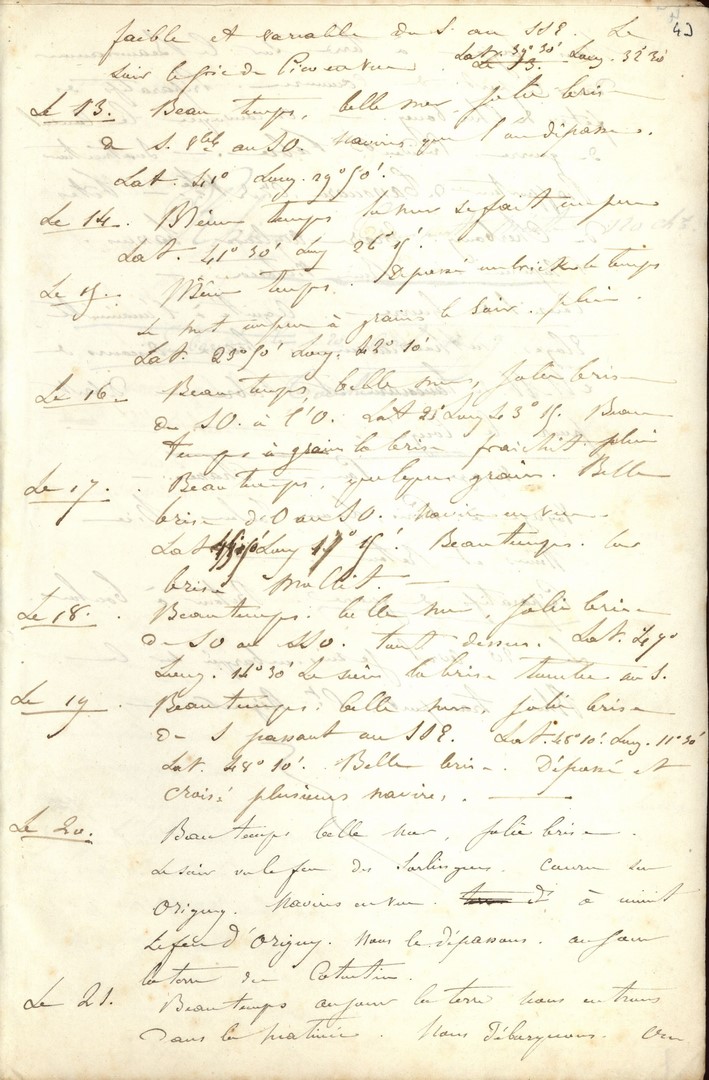 43
faible et variable du S. au SSE. Le
soir le pic de Pico en vue Lat. 39° 30' Long. 32° 30'
Le 13. Beau temps, belle mer, jolie brise
du S. au SO. Navires que l'on dépasse.
Lat. 41° Long. 29° 50'.
Le 14. Même temps la mer se fait un peu
Lat. 41° 30' Long 26° 15'.
Le 15. Même temps. Dépassé un brick le temps
se met un peu à grains le soir. pluie.
Lat. 23° 50' Long. 42° 10'
Le 16. Beau temps, belle mer, jolie brise
du SO. à l'O. Lat Long Beau
temps à grains la brise fraichit pluie
Le 17. Beau temps, quelques grains. Belle
brise d'O au SO. Navire en vue
Lat Long 17° 15'. Beau temps. La
brise mollit.
Le 18. Beau temps. belle mer, jolie brise
du SO au SSO. tout dessus. Lat. 47°
Long. 14° 30' Le soir la brise tombe au S.
Le 19. Beau temps, belle mer, jolie brise
du S passant au SSE. Lat. 48° 10'. Long. 11° 30'
Lat. 48° 10'. Belle brise. Dépassé et
croisé plusieurs navires.
Le 20. Beau temps belle mer, jolie brise.
Le soir vu le feu des Sorlingues. Couru sur
Origny. Navires en vue. à minuit
Le feu d'Origny. Nous le dépassons. au jour
la terre du Cotentin.
Le 21. Beau temps au jour la terre nous entrons
dans la matinée. Nous débarquons.